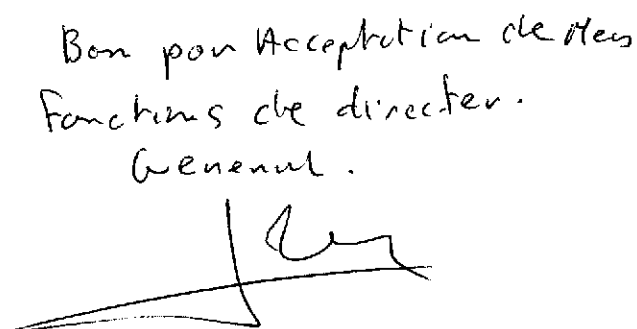 Bon pour Acceptation de Mes
Fonctions de directeur.
General.